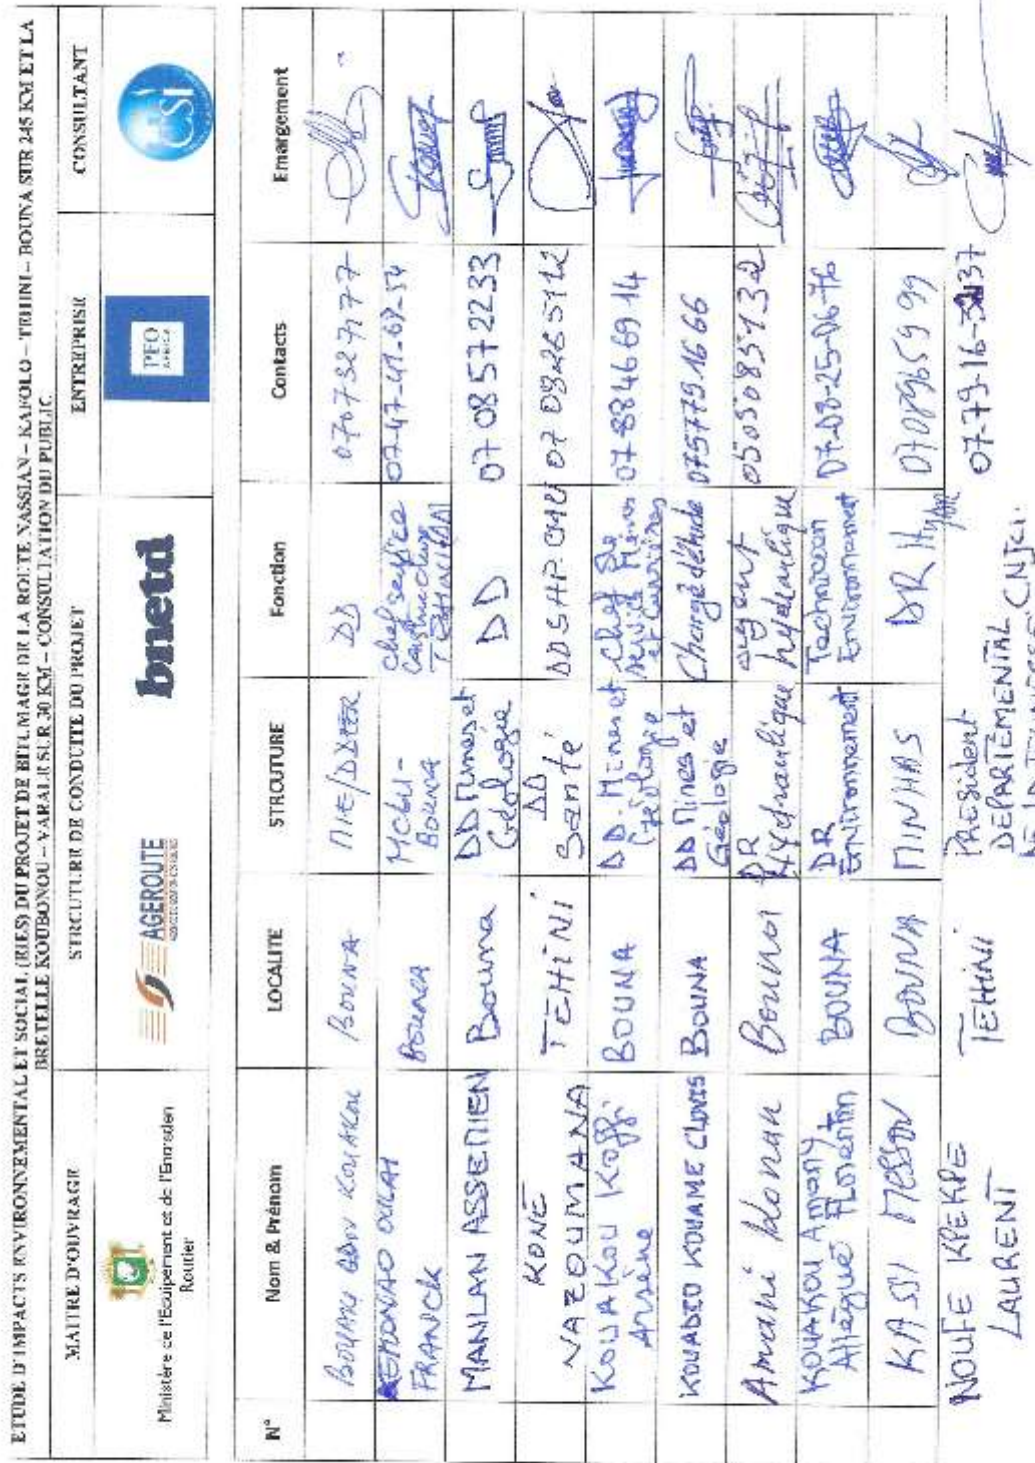 ETUDE D'IMPACTS ENVIRONNEMENTAL ET SOCIAL (EIES) DU PROJET DE BITUMAGE DE LA ROUTE NASSIAN – KAFOLO – TEHINI – BOUNA SUR 245 KM ET LA
BRETELLE KOUBONOU – VARALE SUR 30 KM – CONSULTATION DU PUBLIC
MAITRE D'OUVRAGE STRCUTURE DE CONDUITE DU PROJET ENTREPRISE CONSULTANT
Ministère de l'Equipement et de l'Entretien
Routier
AGEROUTE
bnetd
PFO
AFRICA
CSI
N° Nom & Prénom LOCALITE STRCUTURE Fonction Contacts Emargement
KOUAKOU BOUNA MIE/DDEER DD 0707327177
DEMONVAO
FRANCK Bouna MCLU-
Bouna Chef service
Construction 07-47-41-69-54
MANLAN ASSEMIEN Bouna DD Mines et
Géologie DD 07 08 57 22 33
KONÉ
VAZOUMANA TEHINI DD
Santé DDSHP-CMU 07 09 26 51 12
KOUAKOU Koffi
Arsène BOUNA DD. Mines et
Géologie Chef de
service Mines
et Carrières 07-88 46 69 14
KOUADIO KOUAME CLOVIS BOUNA DD Mines et
Géologie Chargé d'étude 0757791666
Amani Konan Bouna DR
Hydraulique agent
hydraulique 0505085132
KOUAKOU Amany
Allègue Florentin BOUNA DR
Environnement Technicien
Environnement 07-08-25-06-76
KASSI Messou BOUNA MINHAS DR Hydr 0708965999
NOUFE KPEKPE
LAURENT TEHINI President
DEPARTEMENTAL CNJCI. 07-79-16-37